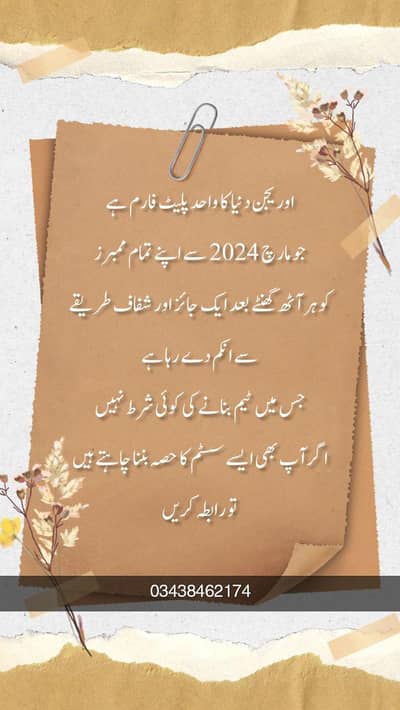 اوریجن دنیا کا واحد پلیٹ فارم ہے
جو مارچ 2024 سے اپنے تمام ممبرز
کو ہر آٹھ گھنٹے بعد ایک جائز اور شفاف طریقے
سے انکم دے رہا ہے
جس میں ٹیم بنانے کی کوئی شرط نہیں
اگر آپ بھی ایسے سسٹم کا حصہ بننا چاہتے ہیں
تو رابطہ کریں
03438462174